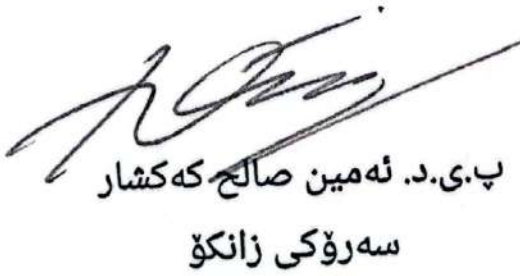 پ.ی.د. ئەمین صالح کەکشار
سەرۆکی زانکۆ